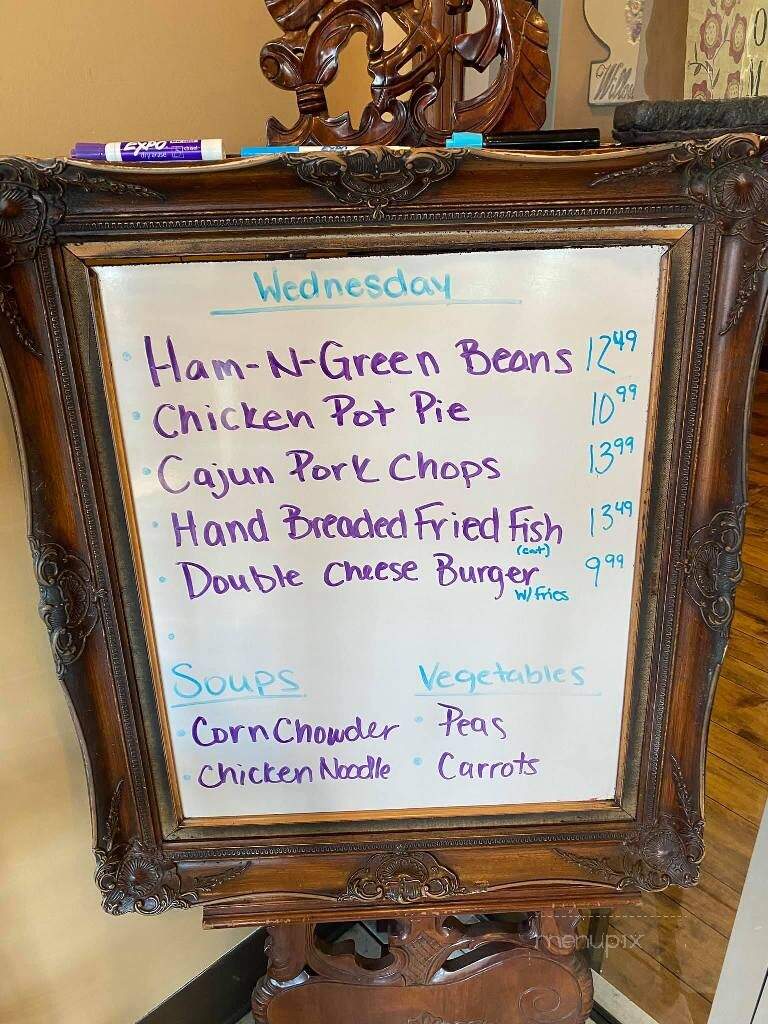 EXPO
dry erase
Wednesday
Ham-N-Green Beans 12 49
Chicken Pot Pie 10 99
Cajun Pork Chops 13 99
Hand Breaded Fried Fish 13 49
(cat)
Double Cheese Burger 9 99
w/ Fries
Soups Vegetables
Corn Chowder Peas
Chicken Noodle Carrots
menupix